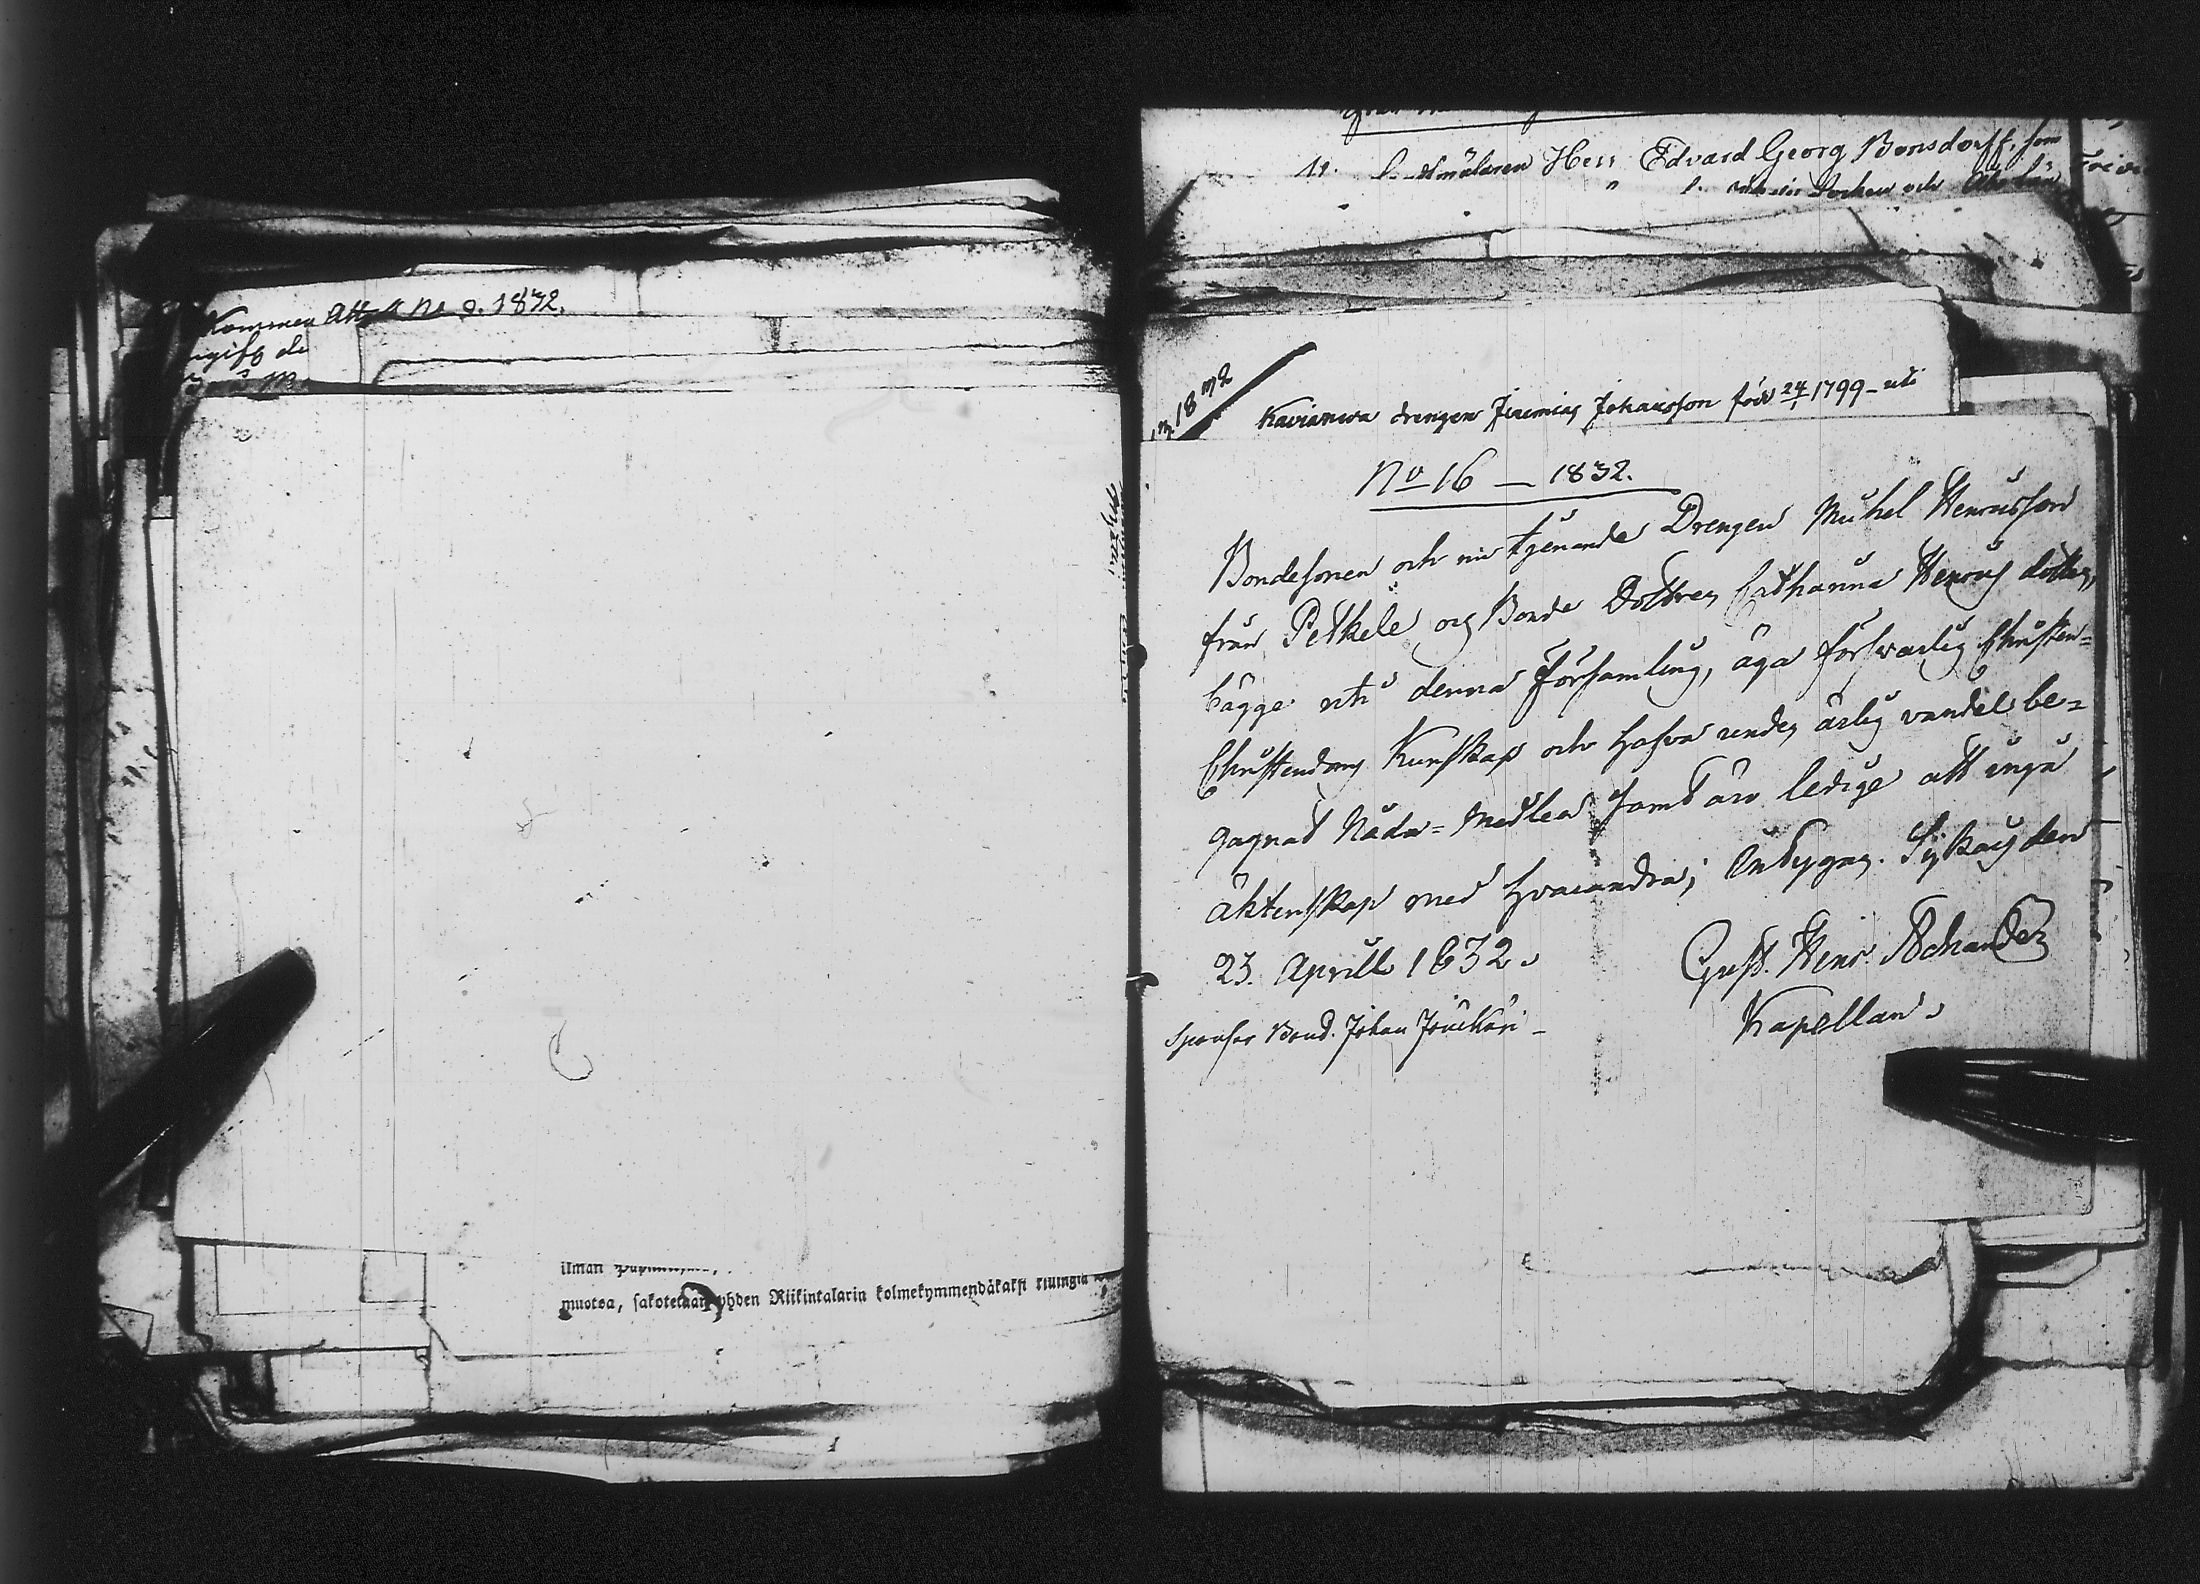 Kommen Att No 9. 1832.
ilman
muotoa, sakotetaan yhden Riikintalarin kolmekymmendäkaksi
Herr Edvard Georg Bonsdorff, som
Socken och
1832
drengen Jeremias Johansson född 24/1 1799 - uti
No 16 — 1832.
Bondesonen och nu tjenande Drengen Michel Henricsson
från Petkele og Bonde Dottren Catharina Henrics dotter,
bägge uti denna Församling, äga försvarlig Christen=
Christendoms Kunskap och hafva under ärlig vandel be=
gagnat Nåda=Medlen samt äro ledige att ingå
äktenskap med hvarandra; betygas. den
23. Aprill 1832.
Gust. Henr.
Kapellan.
Sponsor Bond. Johan